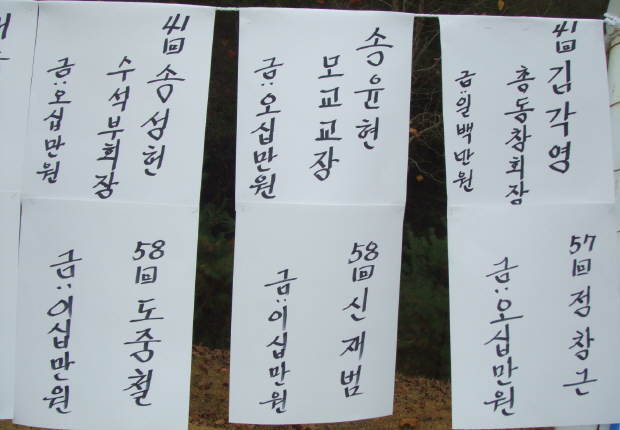 41回 김각영
총동창회장
금:일백만원
송윤현
모교교장
금:오십만원
41回 송성헌
수석부회장
금:오십만원
57回 정창근
금:오십만원
58回 신재범
금:이십만원
58回 도중철
금:이십만원